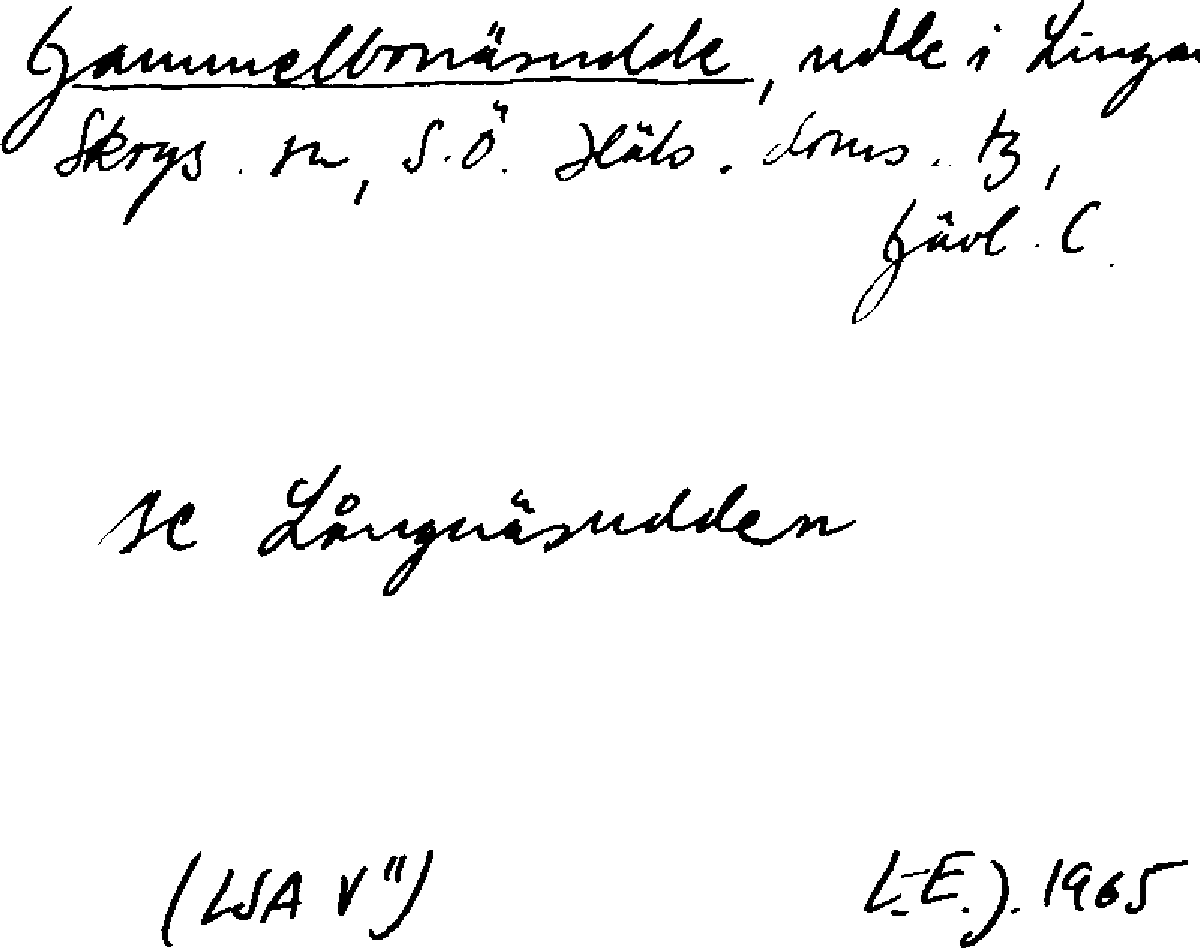 Gammelbonäsudde, udde i Lingan
Skogs. sn, S.Ö. Häls. doms. tg,
Gävl. l.
se Långnäsudden
(LSA V")
L.-E. J. 1965